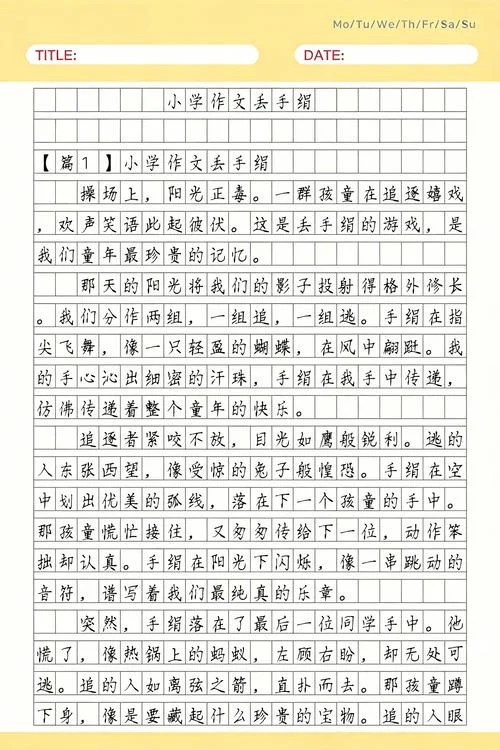 Mo/Tu/We/Th/Fr/Sa/Su
TITLE:
DATE:
小学作文丢手绢
【篇1】小学作文丢手绢
操场上，阳光正毒。一群孩童在追逐嬉戏
，欢声笑语此起彼伏。这是丢手绢的游戏，是
我们童年最珍贵的记忆。
那天的阳光将我们的影子投射得格外修长
。我们分作两组，一组追，一组逃。手绢在指
尖飞舞，像一只轻盈的蝴蝶，在风中翩跹。我
的手心沁出细密的汗珠，手绢在我手中传递，
仿佛传递着整个童年的快乐。
追逐者紧咬不放，目光如鹰般锐利。逃的
人东张西望，像受惊的兔子般惶恐。手绢在空
中划出优美的弧线，落在下一个孩童的手中。
那孩童慌忙接住，又匆匆传给下一位，动作笨
拙却认真。手绢在阳光下闪烁，像一串跳动的
音符，谱写着我们最纯真的乐章。
突然，手绢落在了最后一位同学手中。他
慌了，像热锅上的蚂蚁，左顾右盼，却无处可
逃。追的人如离弦之箭，直扑而去。那孩童蹲
下身，像是要藏起什么珍贵的宝物。追的人眼